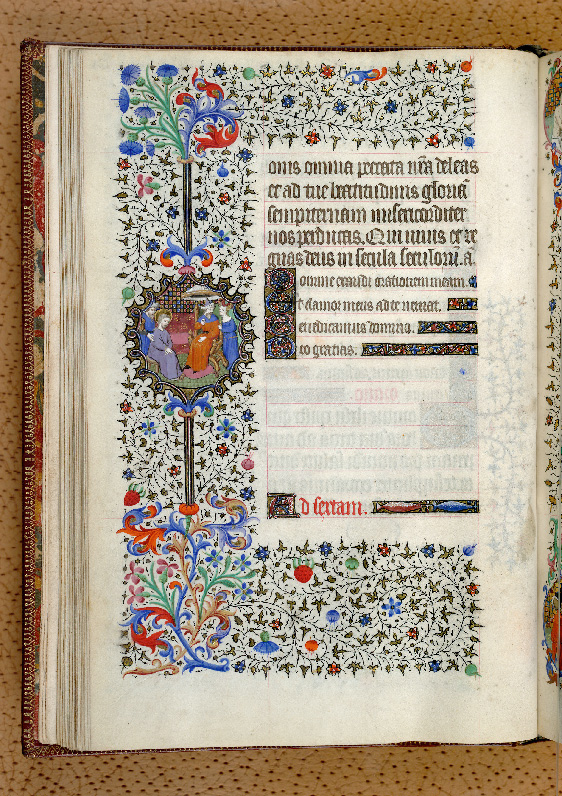 onis omnia peccata nr̃a deleas
et ad tue beatitudinis gloriã
sempiternam misericorditer
nos perducas. Qui viuis et re
gnas deus in secula seculoru. a.
Domine exaudi orationem meam.
Et clamor meus ad te veniat.
Benedicamus domino.
Deo gratias.
Ad sextam.